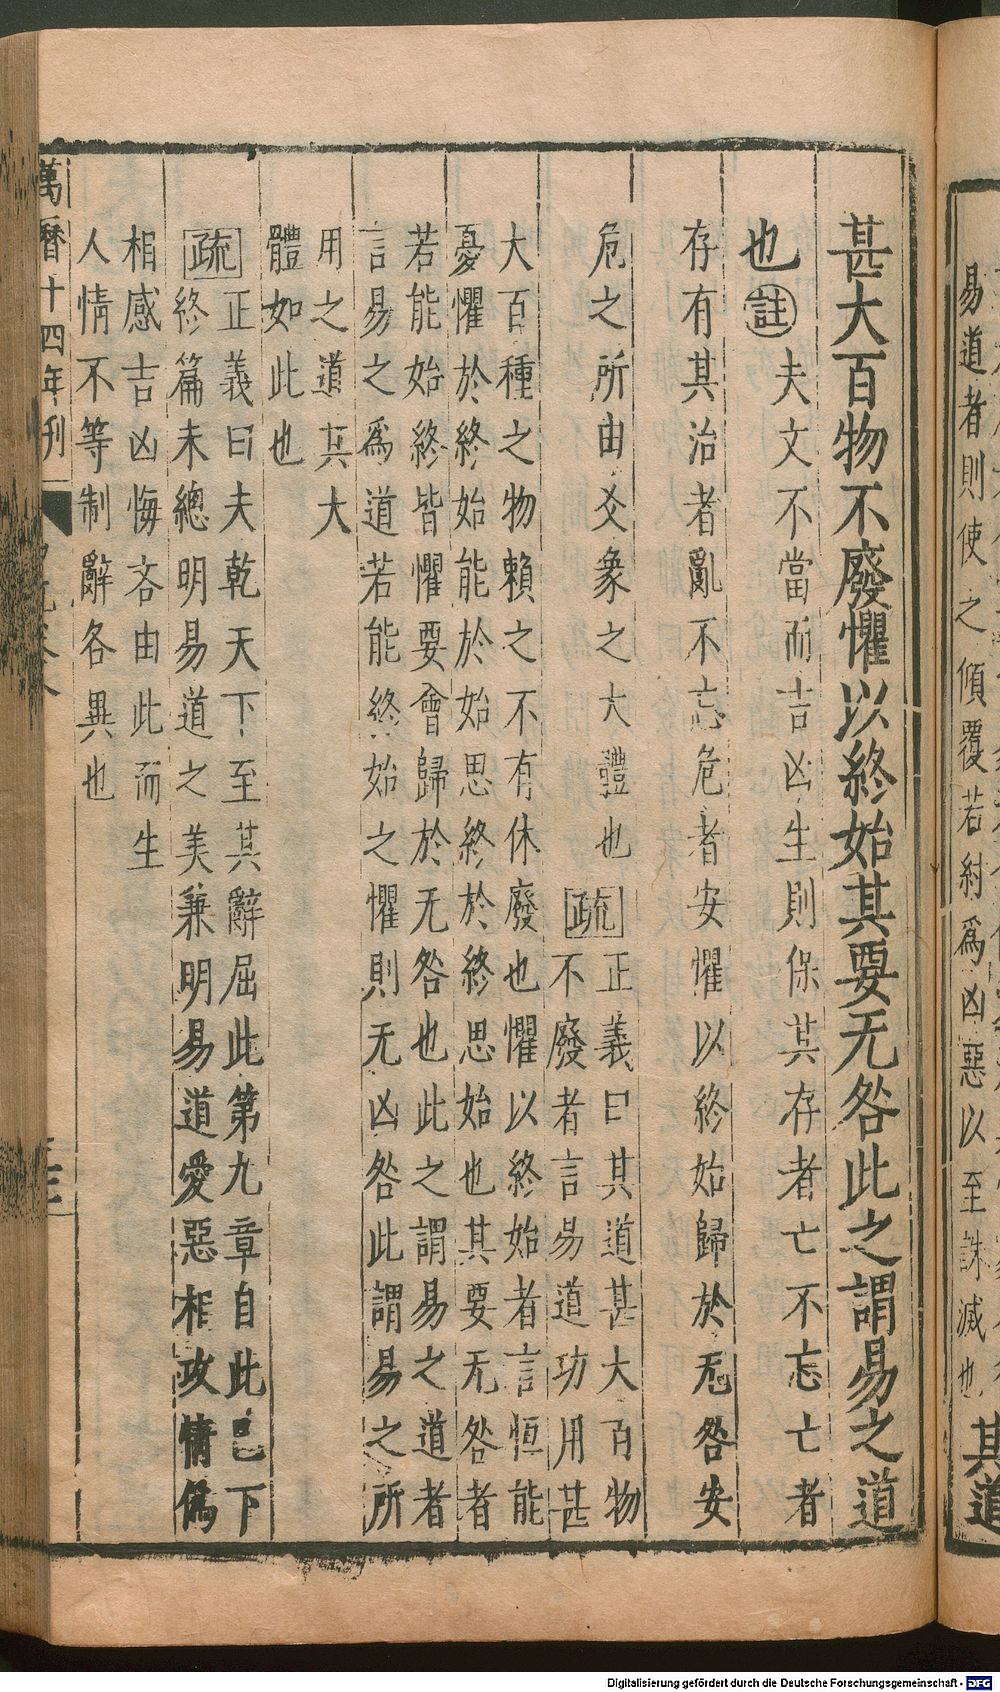 易道者則使之傾覆若紂爲凶惡以至誅滅也其道
甚大百物不廢懼以終始其要无咎此之謂易之道
也 註 夫文不當而吉凶生則保其存者亡不忘亡者
存有其治者亂不忘危者安懼以終始歸於无咎安
危之所由爻象之大體也 疏 正義曰其道甚大百物
不廢者言易道功用甚
大百種之物賴之不有休廢也懼以終始者言恒能
憂懼於終始能於始思終於終思始也其要无咎者
若能始終皆懼要會歸於无咎也此之謂易之道者
言易之爲道若能終始之懼則无凶咎此謂易之所
用之道其大
體如此也
疏 正義曰夫乾天下至其辭屈此第九章自此已下
終篇末總明易道之美兼明易道愛惡相攻情僞
相感吉凶悔吝由此而生
人情不等制辭各異也
萬曆十四年刊
Digitalisierung gefördert durch die Deutsche Forschungsgemeinschaft - DFG